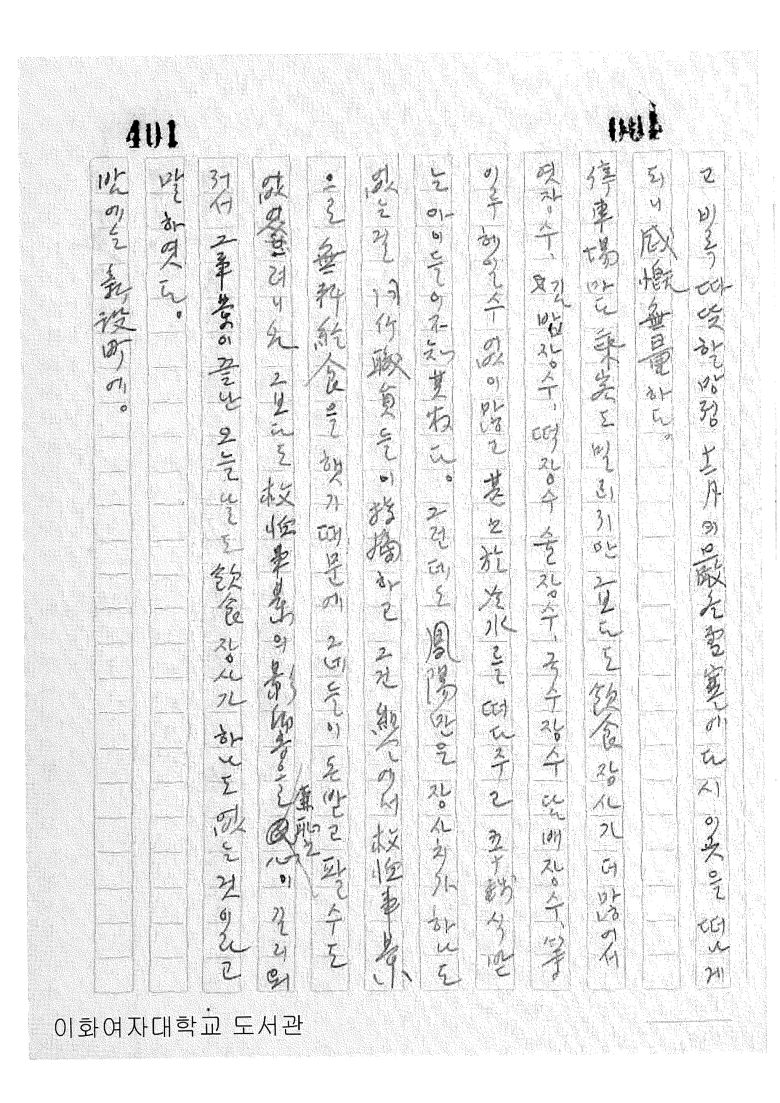 401
고 비록 따뜻할망정 十二月의 嚴冬雪寒에 다시 이곳을 떠나게
되니 感慨無量하다.
停車場마다 乘客도 밀리지만 그보다도 飮食장사가 더 많어서
엿장수, 김밥장수, 떡장수 술장수, 국수장수 담배장수,
일루 헤일수 없이 많고 甚至於 冷水를 떠다주고 五十錢식 받
는 아이들이 不知其數다. 그런데도 鳳陽만은 장사치가 하나도
없는걸 同行職員들이 指摘하고 그건 組合에서 救恤事業
으로 無料給食을 했기 때문에 그네들이 돈받고 팔 수도
없었으려니와 그보다도 救恤事業의 影響으로 廉恥心이 길리워
저서 그 事業이 끝난 오늘날도 飮食장사가 하나도 없는 것이라고
말하였다.
밤에는 新設町에.
이화여자대학교 도서관